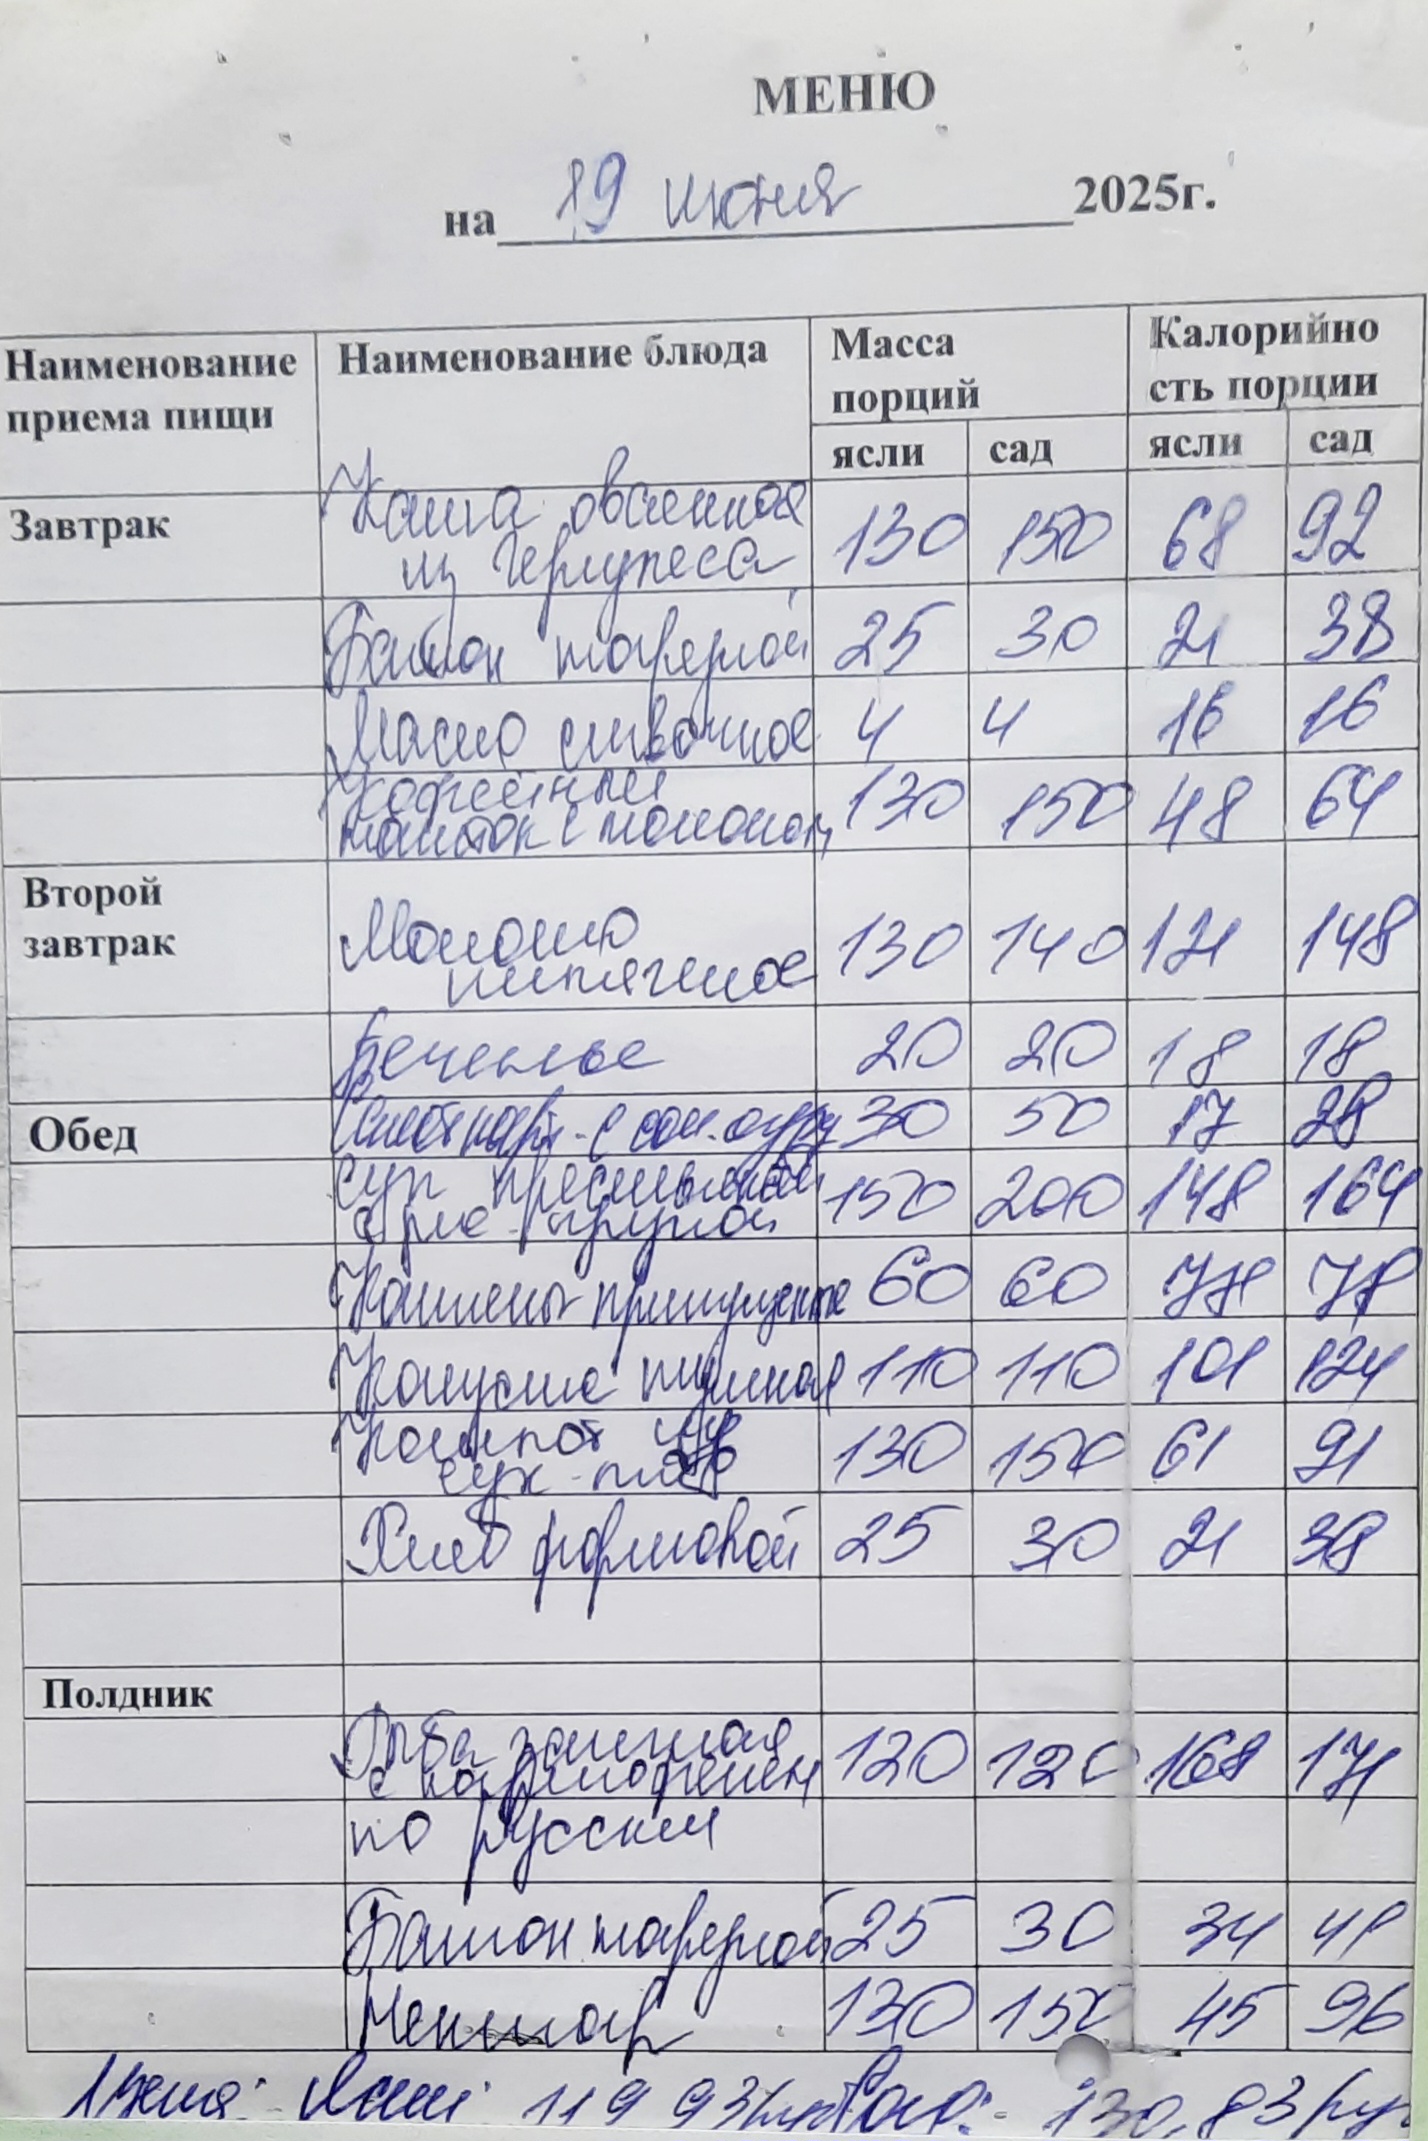 МЕНЮ
на 19 июня 2025г.
Наименование приема пищи Наименование блюда Масса порций Калорийно сть порции
ясли сад ясли сад
Завтрак Каша овсяная
из Геркулеса 130 150 68 92
Батон нарезной 25 30 21 38
Масло сливочное 4 4 16 16
Кофейный
напиток с молоком 130 150 48 64
Второй
завтрак Молоко
кипяченое 130 140 121 148
Печенье 20 20 18 18
Обед с сол. огур 30 50 17 28
Суп
с крупой 150 200 148 164
60 60 78 78
Капуста тушеная 110 110 101 124
Компот из
сух. плод 130 150 61 91
Хлеб формовой 25 30 21 38
Полдник
Рыба запеченная
с картофелем 120 120 168 171
по русски
Батон нарезной 25 30 34 41
Нектар 130 150 45 96
Цена: Ясли: 119 93 руб Сад: - 130,83 руб